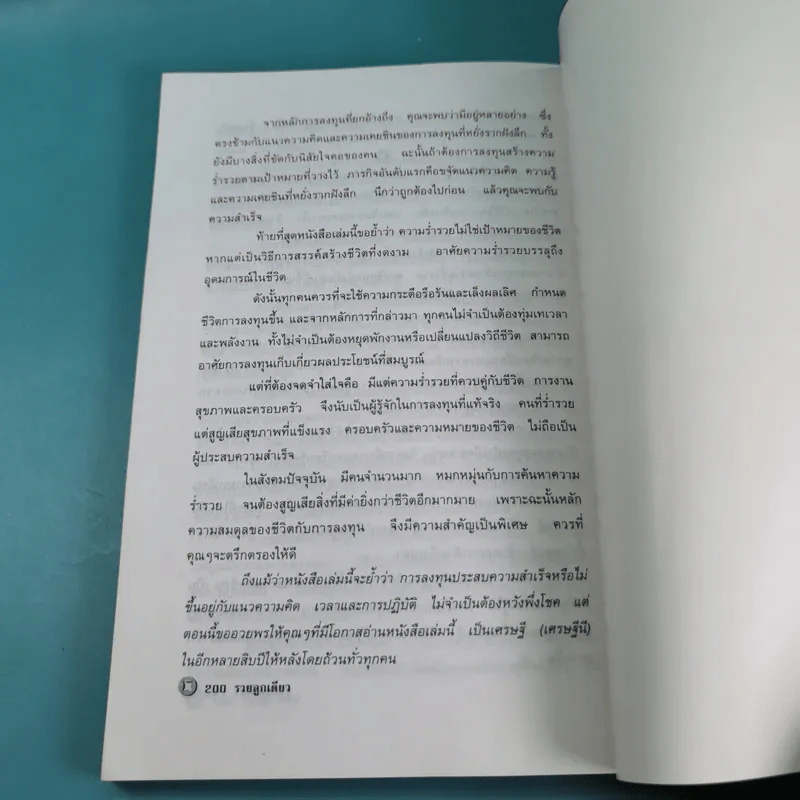 จากหลักการลงทุนที่ยกอ้างถึง คุณจะพบว่ามีอยู่หลายอย่าง ซึ่ง
ตรงข้ามกับแนวความคิดและความเคยชินของการลงทุนที่หยั่งรากฝังลึก ทั้ง
ยังมีบางสิ่งที่ขัดกับนิสัยใจคอของคน ฉะนั้นถ้าต้องการลงทุนสร้างความ
ร่ำรวยตามเป้าหมายที่วางไว้ ภารกิจอันดับแรกคือขจัดแนวความคิด ความรู้
และความเคยชินที่หยั่งรากฝังลึก นึกว่าถูกต้องไปก่อน แล้วคุณจะพบกับ
ความสำเร็จ
ท้ายที่สุดหนังสือเล่มนี้ขอย้ำว่า ความร่ำรวยไม่ใช่เป้าหมายของชีวิต
หากแต่เป็นวิธีการสรรค์สร้างชีวิตที่งดงาม อาศัยความร่ำรวยบรรลุถึง
อุดมการณ์ในชีวิต
ดังนั้นทุกคนควรที่จะใช้ความกระตือรือร้นและเล็งผลเลิศ กำหนด
ชีวิตการลงทุนขึ้น และจากหลักการที่กล่าวมา ทุกคนไม่จำเป็นต้องทุ่มเทเวลา
และพลังงาน ทั้งไม่จำเป็นต้องหยุดพักงานหรือเปลี่ยนแปลงวิถีชีวิต สามารถ
อาศัยการลงทุนเก็บเกี่ยวผลประโยชน์ที่สมบูรณ์
แต่ที่ต้องจดจำใส่ใจคือ มีแต่ความร่ำรวยที่ควบคู่กับชีวิต การงาน
สุขภาพและครอบครัว จึงนับเป็นผู้รู้จักในการลงทุนที่แท้จริง คนที่ร่ำรวย
แต่สูญเสียสุขภาพที่แข็งแรง ครอบครัวและความหมายของชีวิต ไม่ถือเป็น
ผู้ประสบความสำเร็จ
ในสังคมปัจจุบัน มีคนจำนวนมาก หมกหมุ่นกับการค้นหาความ
ร่ำรวย จนต้องสูญเสียสิ่งที่มีค่ายิ่งกว่าชีวิตอีกมากมาย เพราะฉะนั้นหลัก
ความสมดุลของชีวิตกับการลงทุน จึงมีความสำคัญเป็นพิเศษ ควรที่
คุณๆจะตรึกตรองให้ดี
ถึงแม้ว่าหนังสือเล่มนี้จะย้ำว่า การลงทุนประสบความสำเร็จหรือไม่
ขึ้นอยู่กับแนวความคิด เวลาและการปฏิบัติ ไม่จำเป็นต้องหวังพึ่งโชค แต่
ตอนนี้ขออวยพรให้คุณๆที่มีโอกาสอ่านหนังสือเล่มนี้ เป็นเศรษฐี (เศรษฐีนี)
ในอีกหลายสิบปีให้หลังโดยถ้วนทั่วทุกคน
200 รวยลูกเดียว